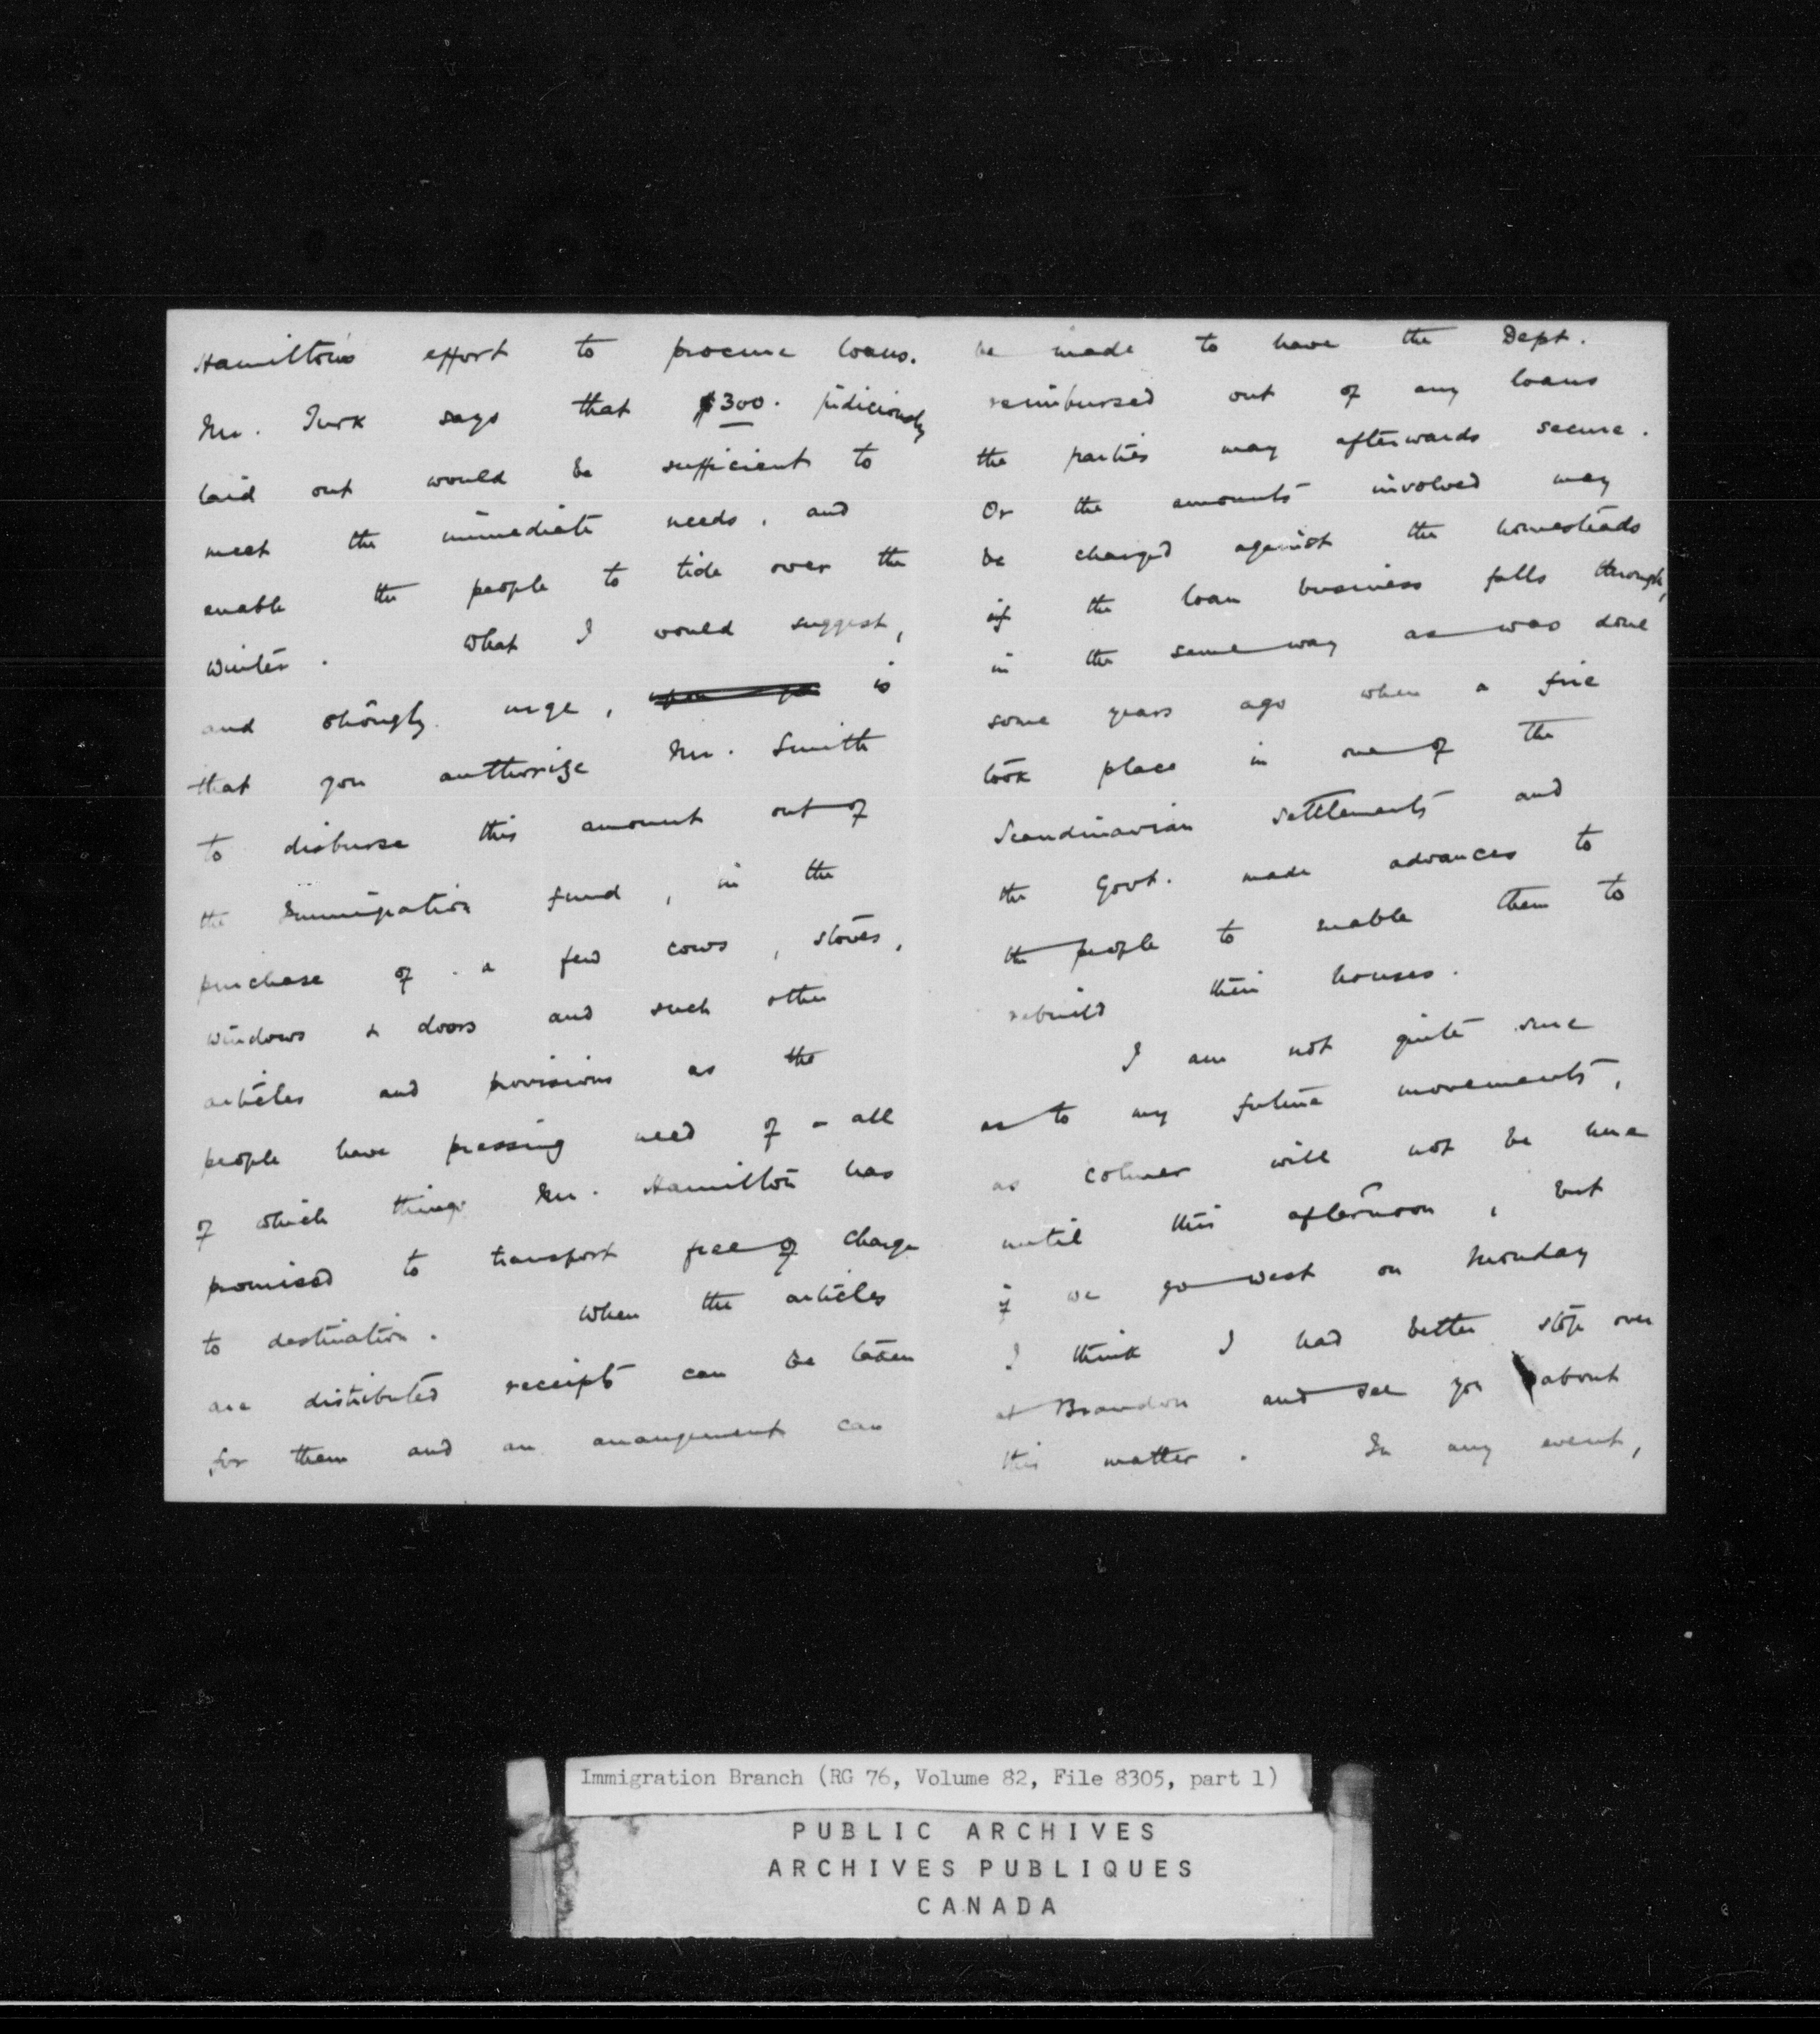 Hamilton's effort to procure loans.
Mr. Turk says that $300. judiciously
laid out would be sufficient to
meet the immediate needs, and
enable the people to tide over the
winter. What I would suggest,
and strongly urge, is
that you authorize Mr. Smith
to disburse this amount out of
the Immigration fund, in the
purchase of a few cows, stoves,
windows & doors and such other
articles and provisions as the
people have pressing need of - all
of which things Mr. Hamilton has
promised to transport free of charge
to destination. When the articles
are distributed receipts can be taken
for them and an arrangement can
be made to have the Dept.
reimbursed out of any loans
the parties may afterwards secure.
Or the amounts involved may
be charged against the homesteads
if the loan business falls through,
in the same way as was done
some years ago when a fire
took place in one of the
Scandinavian settlements and
the Govt. made advances to
the people to enable them to
rebuild their houses.
I am not quite sure
as to my future movements,
as Colmer will not be here
until this afternoon, but
if we go west on Monday
I think I had better stop over
at Brandon and see you about
this matter. In any event,
Immigration Branch (RG 76, Volume 82, File 8305, part 1)
PUBLIC ARCHIVES
ARCHIVES PUBLIQUES
CANADA